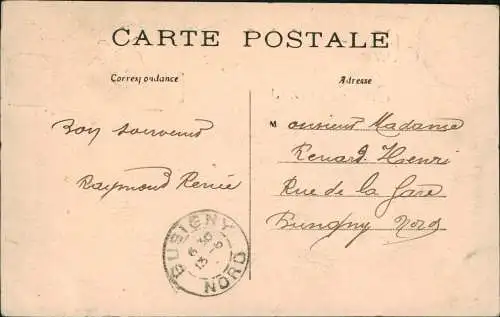 CARTE POSTALE
Correspondance
Adresse
Bon souvenir
Raymond Renée
Monsieur Madame
Renard Henri
Rue de la Gare
Busigny Nord
BUSIGNY
6 30
13 - 6
NORD